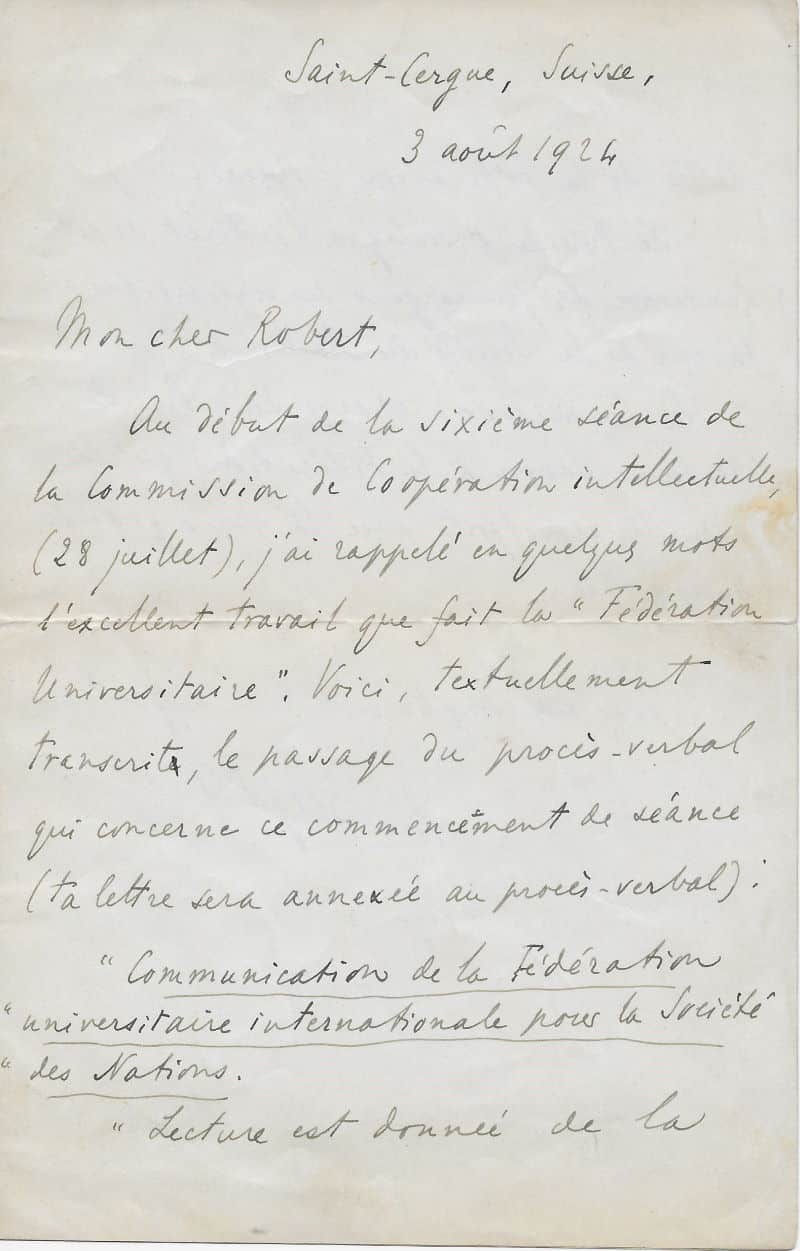 Saint-Cergue, Suisse,
3 août 1924
Mon cher Robert,
Au début de la sixième séance de
la Commission de Coopération intellectuelle,
(28 juillet), j'ai rappelé en quelques mots
l'excellent travail que fait la "Fédération
Universitaire". Voici, textuellement
transcrit, le passage du procès-verbal
qui concerne ce commencement de séance
(ta lettre sera annexée au procès-verbal) :
"Communication de la Fédération
"universitaire internationale pour la Société
"des Nations.
"Lecture est donnée de la